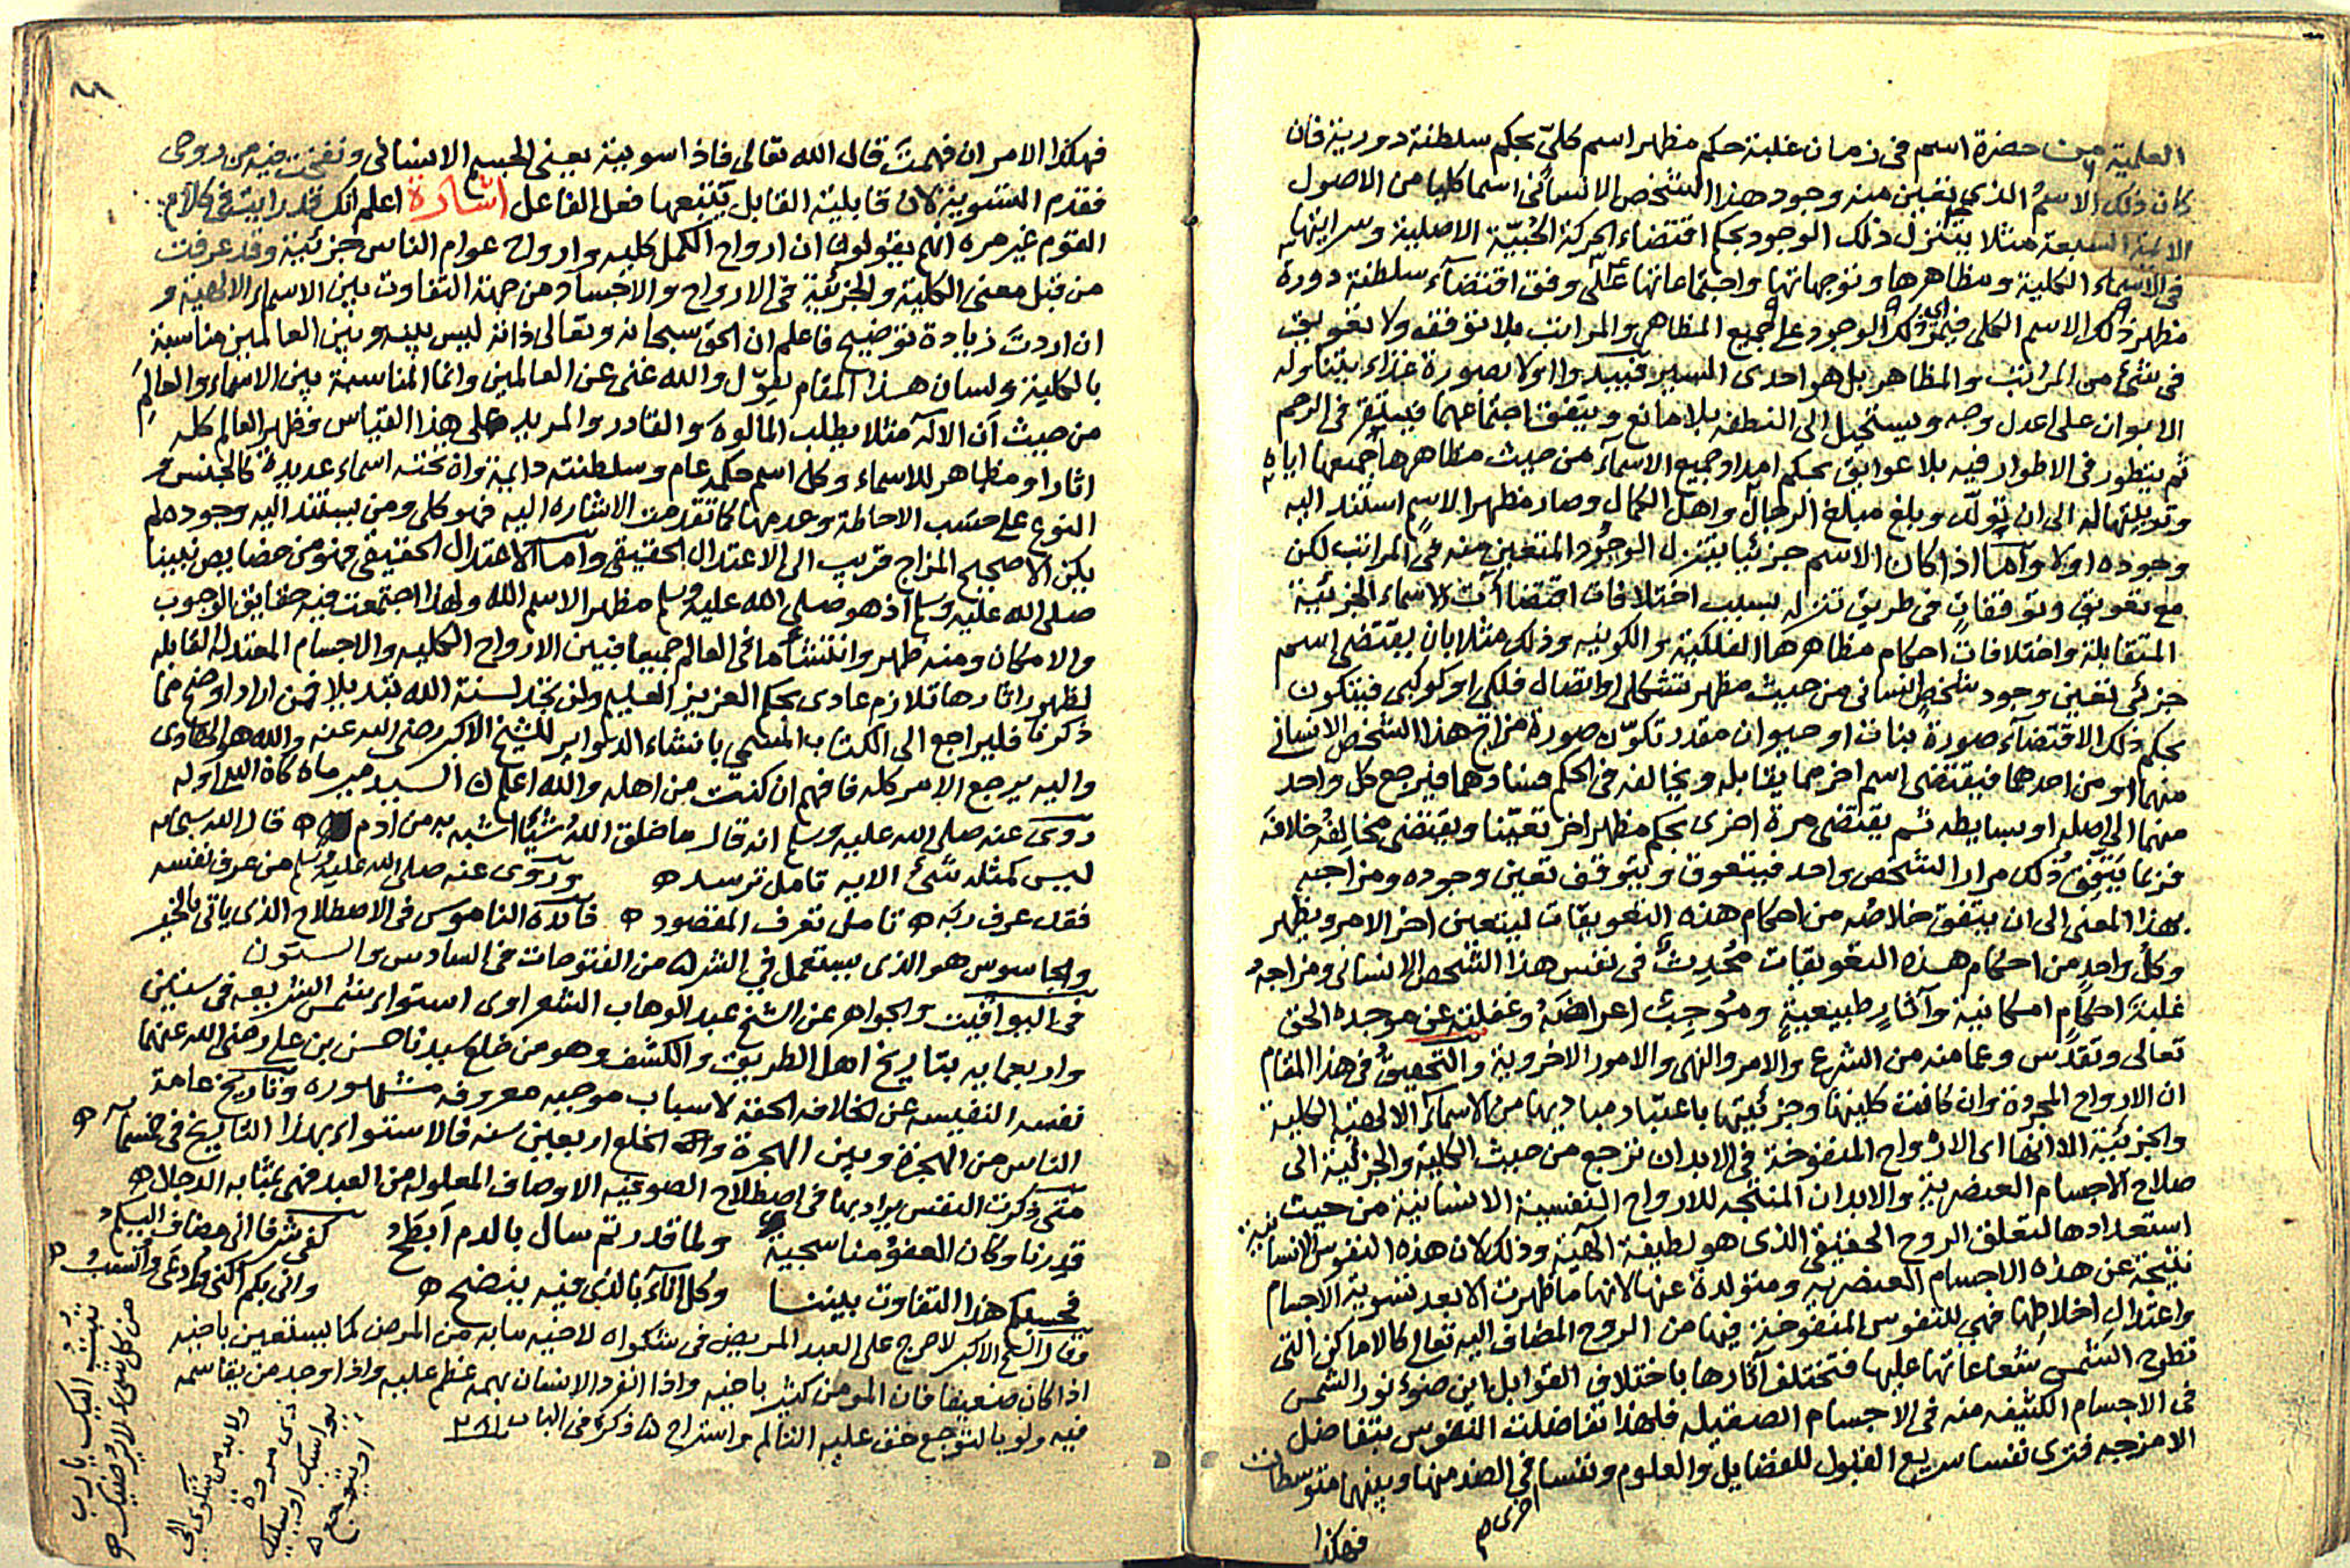 العلمية من حضرة اسم فى زمان غلبة حكم مظهر اسم كلىّ بحكم سلطنة دورية فان
كان ذلك الاسم الذى تعين منه وجود هذا الشخص الانسانى اسما كليا من الاصول
الائمة السبعة مثلا يتنزل ذلك الوجود بحكم اقتضاء الحركة الحُبّيّة الاصلية وسرايتها
فى الاسماء الكلية ومظاهرها وتوجهاتها واجتماعاتها على وفق اقتضاء سلطنة دورة
مظهر ذلك الاسم الكلى فيمر ذلك الوجود على جميع المظاهر والمراتب بلا توقف ولا تعويق
فى شىء من المراتب والمظاهر بل هو احدى السير فيبدوا اولا بصورة غذاء يتناوله
الابوان على اعدل وجه ويستحيل الى النطفة بلا مانع ويتفق اجتماعهما فيستقر فى الرحم
ثم يتطور فى الاطوار فيه بلا عوايق بحكم امداد جميع الاسماء من حيث مظاهرها جميعها اياه
وتربيتها له الى ان تولّد وبلغ مبلغ الرجال واهل الكمال وصار مظهرا لاسم استند اليه
وجوده اولا واما اذا كان الاسم جزئيا يتنزل الوجود المتعين منه فى المراتب لكن
مع تعويق وتوقفات فى طريق تنزله بسبب اختلافات اقتضاآت الاسماء الجزئية
المتقابلة واختلافات احكام مظاهرها الفلكية والكونيه وذلك مثلا بان يقتضى اسم
جزئى تعين وجود شخص انسانى من حيث مظهر تشكل او اتصال فلكى او كوكبى فيتكون
بحكم ذلك الاقتضاء صورة نبات او حيوان مقدر تكوّن صورة مزاج هذا الشخص الانسانى
منهما او من احدهما فيقتضى اسم اخر مما يقابله ويخالفه فى الحكم فسادهما فيرجع كل واحد
منهما الى اصله او بسايطه ثم يقتضى مرة اخرى بحكم مظهر اخر تعيّنا ويقتضى مخالِفُه خلافَه
فربما يتفق ذلك مرارا لشخص واحد فيتعوق ويتوقف تعين وجوده ومزاجه
بهذا المعنى الى ان يتفق خلاصه من احكام هذه التعويقات ليتعين اخر الامر ويظهر
وكل واحد من احكام هذه التعويقات مُحْدِثٌ فى نفس هذا الشخص الانسانى ومزاجه
غلبةَ احكامٍ امكانية وآثار طبيعية ومُوجِبٌ اعراضَه وغفلته عن موجده الحق
تعالى وتقدس وعما منه من الشرع والامر والنهى والامور الاخروية والتحقيق فى هذا المقام
ان الارواح المجردة وان كانت كليتها وجزئيتها باعتبار مباديها من الاسماء الالهية الكلية
والجزئية الا انها اى الارواح المنفوخة فى الابدان ترجع من حيث الكلية والجزئية الى
صلاح الاجسام العنصرية والابدان المنتجه للارواح النفسية الانسانية من حيث
استعدادها لتعلق الروح الحقيقى الذى هو لطيفة الهية وذلك لان هذه النفوس الانسانية
نتيجة عن هذه الاجسام العنصريه ومتولدة عنها لانها ما ظهرت الا بعد تسوية الاجسام
واعتدال اخلاطها فهى للنفوس المنفوخة فيها من الروح المضاف اليه تعالى كالاماكن التى
تطرح الشمس شعاعاتها عليها فتختلف آثارها باختلاف القوابل اين ضوء نور الشمس
فى الاجسام الكثيفه منه فى الاجسام الصقيله فلهذا تفاضلت النفوس بتفاضل
الامزجه فترى نفسا سريع القبول للفضايل والعلوم ونفسا فى الضد منها وبينهما متوسطات
اخرى م
فهكذا
٨٨
فهكذا الامر ان فهمتَ قال الله تعالى فاذا سويته يعنى الجسم الانسانى ونفخت فيه من روحى
فقدم التسوية لان قابلية القابل يتبعها فعل الفاعل اشارة اعلم انك قد رايت فى كلام
القوم غير مره انهم يقولون ان ارواح الكمل كليه وارواح عوام الناس جزئية وقد عرفت
من قبل معنى الكلية والجزئية فى الارواح والاجساد ومن جهة التفاوت بين الاسماء الالهية و
ان اردتَ زيادة توضيح فاعلم ان الحق سبحانه وتعالى ذاته ليس بينه وبين العالمين مناسبة
بالكلية ولسان هذا المقام يقول والله غنى عن العالمين وانما المناسبة بين الاسماء والعالم
من حيث ان الآله مثلا يطلب المالوه والقادر والمريد على هذا القياس فظهر العالم كله
اثارا ومظاهر للاسماء وكل اسم حكمه عام وسلطنته دايمة وان تحته اسماء عديدة كالجنس و
النوع على حسب الاحاطة وعدمها كما تقدمت الاشاره اليه فهو كلى ومن يستند اليه وجوده لم
يكن الا صحيح المزاج قريب الى الاعتدال الحقيقى واما الاعتدال الحقيقى فهو من خصايص نبينا
صلى الله عليه وسلم اذ هو صلى الله عليه وسلم مظهر الاسم الله ولهذا اجتمعت فيه حقايق الوجوب
والامكان ومنه ظهر وانتشأ ما فى العالم جميعا فبين الارواح الكليه والاجسام المعتدله القابله
لظهور اثارها تلازم عادى بحكم العزيز العليم ولن تجد لسنة الله تبديلا فمن اراد اوضح مما
ذكرنا فليراجع الى الكتاب المسمى بانشاء الدواير للشيخ الاكبر رضى الله عنه والله هو الهادى
واليه يرجع الامر كله فافهم ان كنت من اهله والله اعلم
روى عنه صلى الله عليه وسلم انه قال ما خلق اللهُ شيئا اشبه به من ادم قال الله سبحانه
ليس كمثله شىء الايه تامل ترشده وروى عنه صلى الله عليه وسلم من عرف نفسه
فقد عرف ربه تامل تعرف المقصود فائدة الناموس فى الاصطلاح الذى ياتى بالخير
والجاسوس هو الذى يستعمل فى الشر من الفتوحات فى السادس والستون
فى اليواقيت والجواهر عن الشيخ عبد الوهاب الشعراوى استواء شمس الشريعه فى سنتين
واربعمايه بتاريخ اهل الطريق والكشف وهو من خلع سيدنا حسن بن على رضى الله عنهما
نفسه النفيسه عن الخلافه الحقه لاسباب موجبه معروفه مشهوره وتاريخ عامة
الناس من الهجرة وبين الهجرة والخلع اربعين سنه فالاستواء بهذا التاريخ فى
متى ذكرت النفس يراد بها فى اصطلاح الصوفيه الاوصاف المعلوله من العبد فهى بمثابه الدجال
قدرنا وكان العفو منا سجية ولما قدرتم سال بالدم ابطح كفى شرفا انى مضاف اليكم
فحسبكم هذا التفاوت بيننا وكل اناء بالذى فيه ينضح وانى بكم اكنى وادعى وانسب
وقال الشيخ الاكبر لا حرج على العبد المريض فى شكواه لاخيه ما به من المرض كما يستعين باخيه
اذا كان ضعيفا فان المومن كثير باخيه واذا انفرد الانسان بهمه عظم عليه واذا وجد من يقاسمه
فيه ولو بالتوجع خف عليه التالم واستراح ذكره فى الباب
ولا بد من شكوى الى
ذى مروءة
يواسيك او يسليك
او يتوجع
تبت اليك يا رب
من كل شىء لا يرضيك